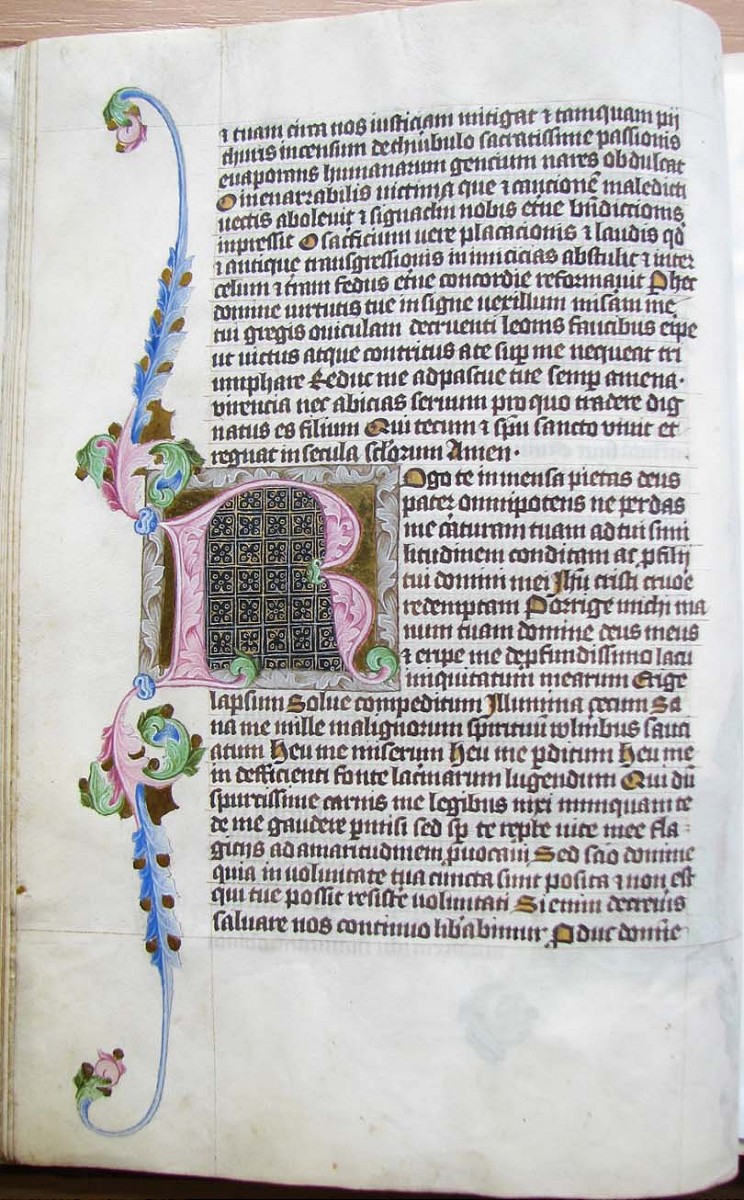 ⁊ tuam circa nos iusticiam mitigat ⁊ tamquam pii
thuris incensum de thuribulo sacratissime passionis
euaporans humanarum gencium nares obdulcat
O inenarrabilis victima que ⁊ caucionē maledicti
uectis aboleuit ⁊ signaclm nobis etne bn̄dictionis
inpressit O sacrificium uere placacionis ⁊ laudis qd̄
⁊ antique transgressionis inimicicias abstulit ⁊ inter
celum ⁊ tram fedus etne concordie reformauit Phet
domine uirtutis tue insigne uexillum misam me
tui gregis ouiculam decruenti leonis faucibus eripe
ut uictus atque contritus a te sup me nequeat tri
umphare Reduc me ad pascue tue semp amena
virencia nec abicias seruum pro quo tradere dig
natus es filium Qui tecum ⁊ spu sancto viuit et
regnat in secula sclorum Amen
Rogo te inmensa pietas deus
pater omnipotens ne perdas
me caturam tuam ad tui simi
litudinem conditam ac p filij
tui domini mei Jhu cristi cruore
redemptam Porrige michi ma
num tuam domine deus meus
⁊ eripe me de pfundissimo lacu
iniquitatum mearum Erige
lapsum Solue compeditum Jllumina cecum Sa
na me mille malignorum spirituū vulnibus sauci
atum Heu me miserum Heu me pditum Heu me
in defficienti fonte lacrimarum lugendum Qui dū
spurcissime carnis me legibus nixi numquam te
de me gaudere pmisi sed sp te replete uite mee fla
gitijs ad amaritudinem puocaui Sed scio domine
quia in uoluntate tua cuncta sunt posita ⁊ non est
qui tue possit resistere uoluntati Si enim decreueris
saluare nos continuo libabimur Pduc domine